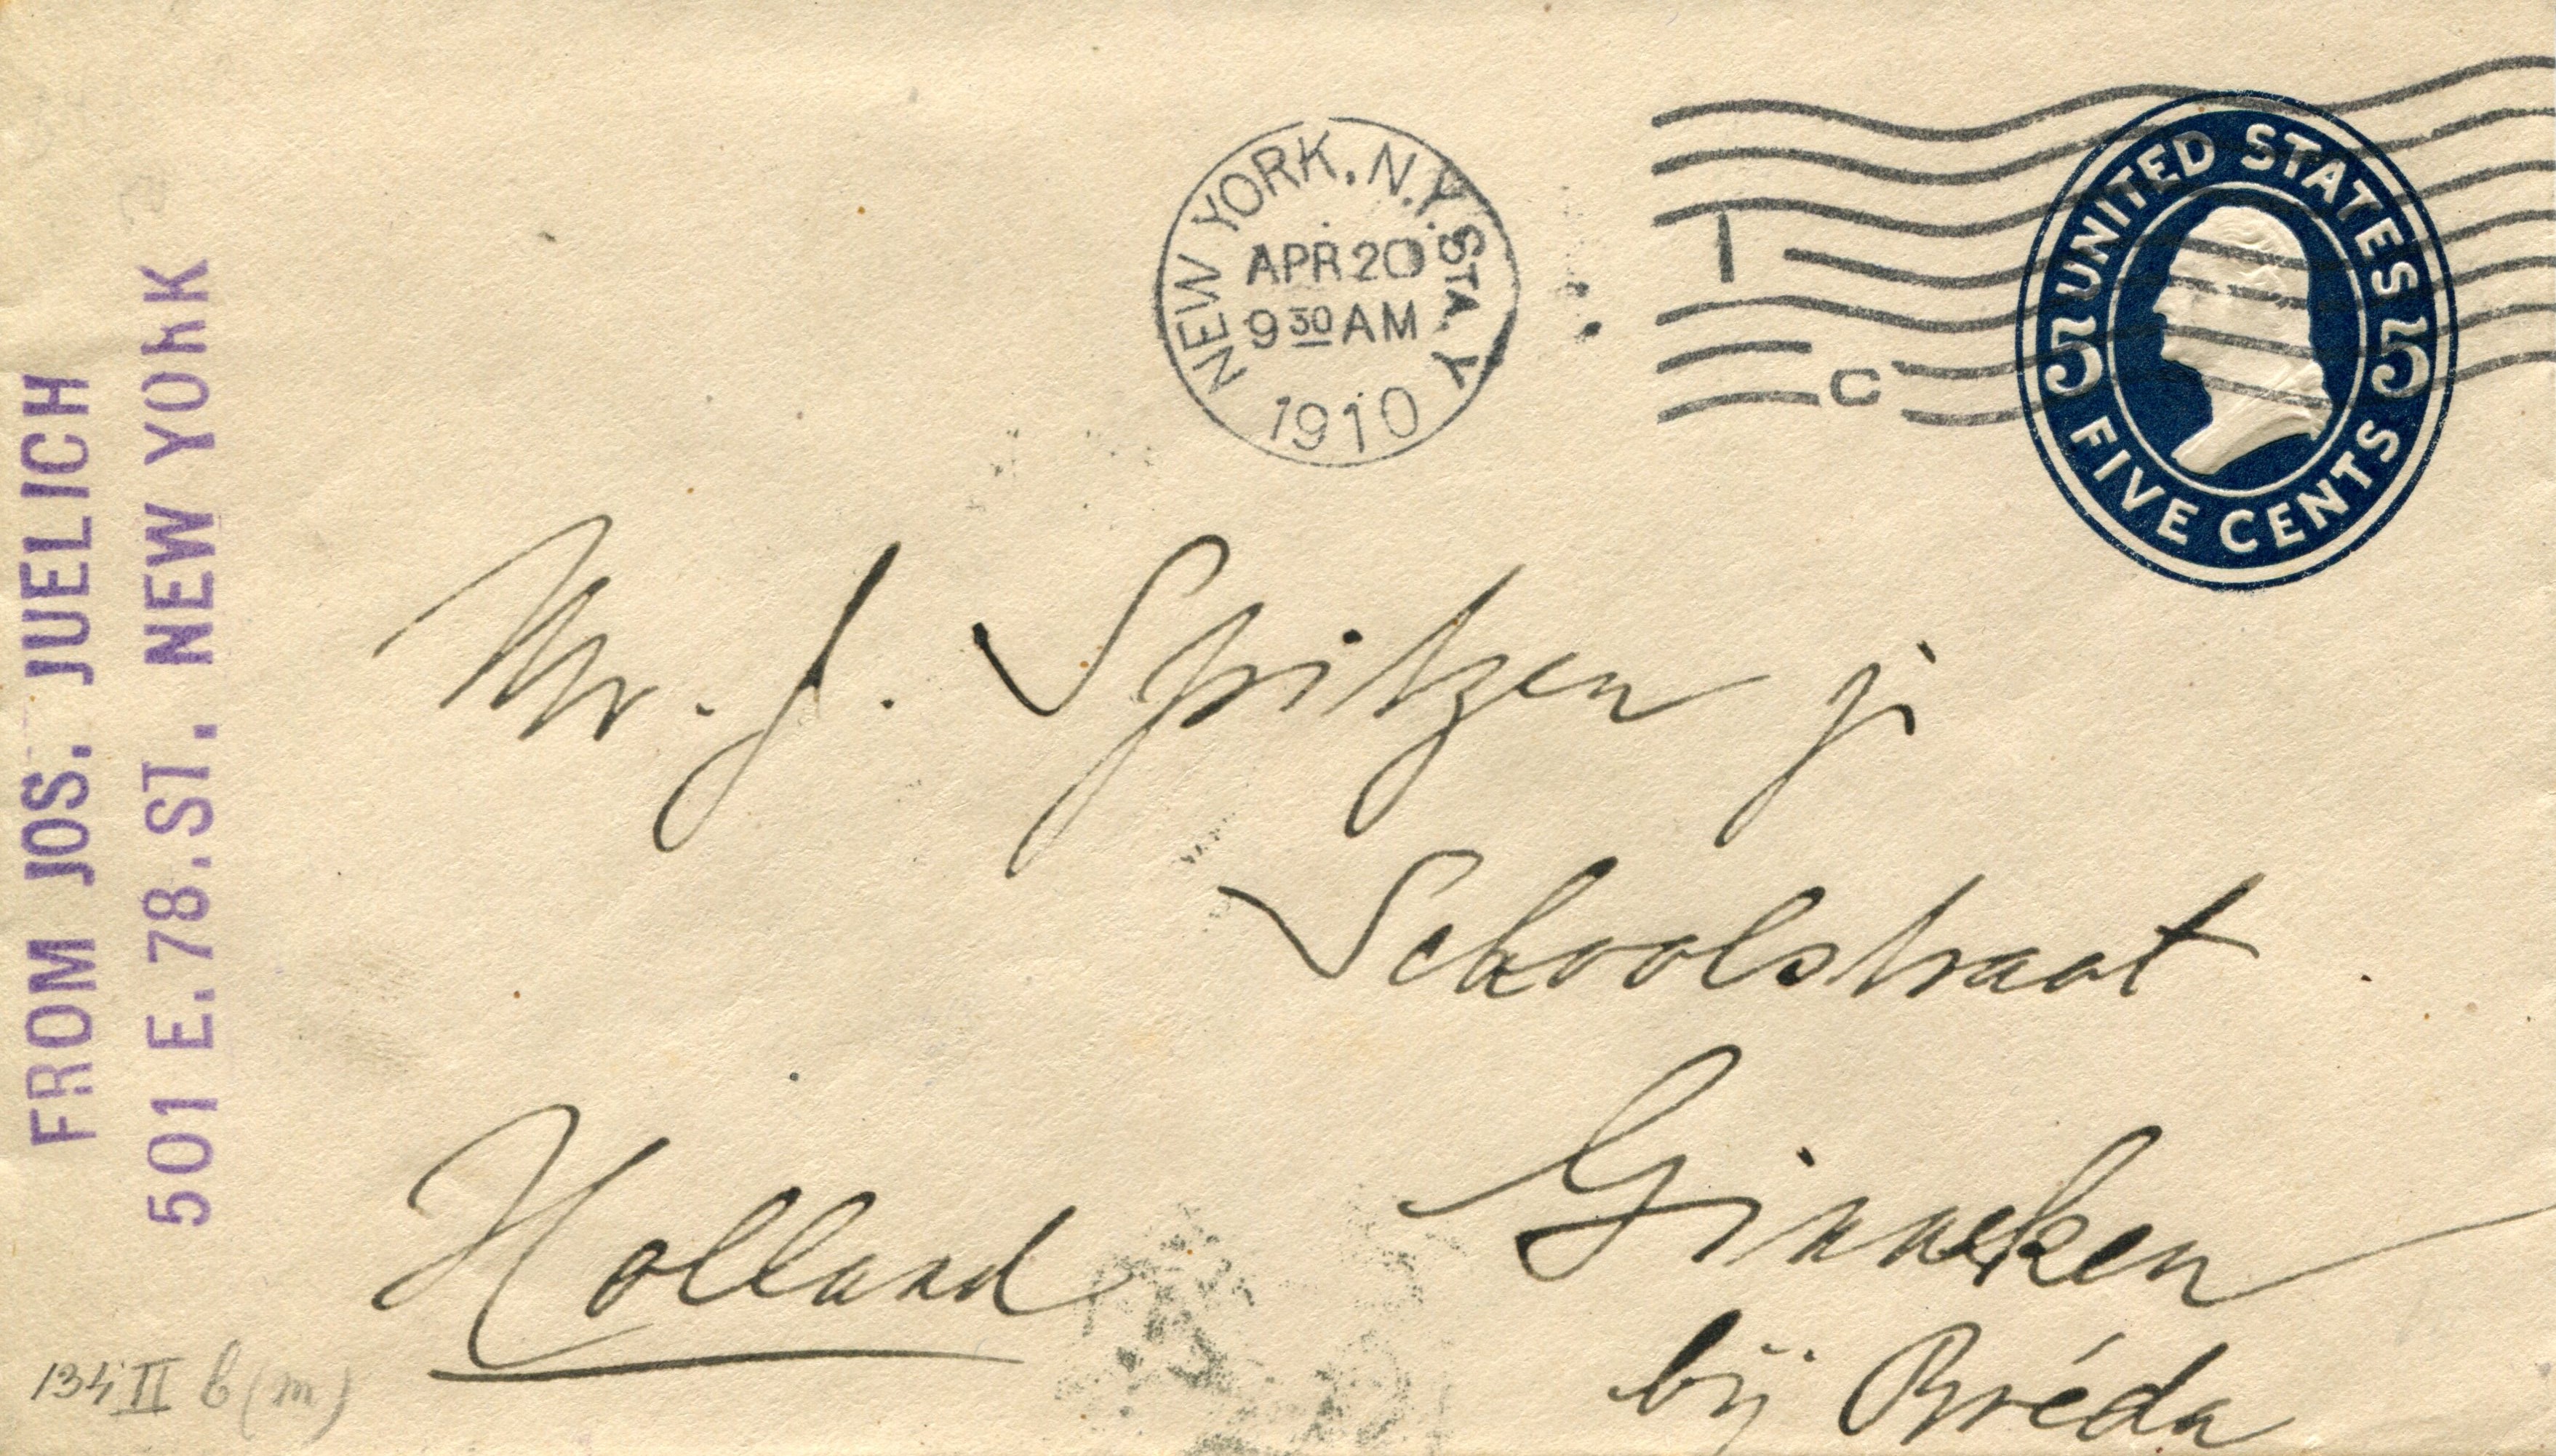 FROM JOS. JUELICH
501 E. 78. ST. NEW YORK
NEW YORK, N.Y. STA. Y
APR 20
9 30 AM
1910
1
C
UNITED STATES
5 5
FIVE CENTS
Mr. J. Spitzen jr
Schoolstraat
Ginneken
Holland
bij Bréda
134 II b (m)